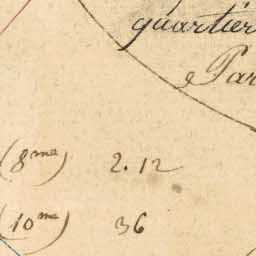 quartier
e Par
(8me) 2.12
(10me) 36